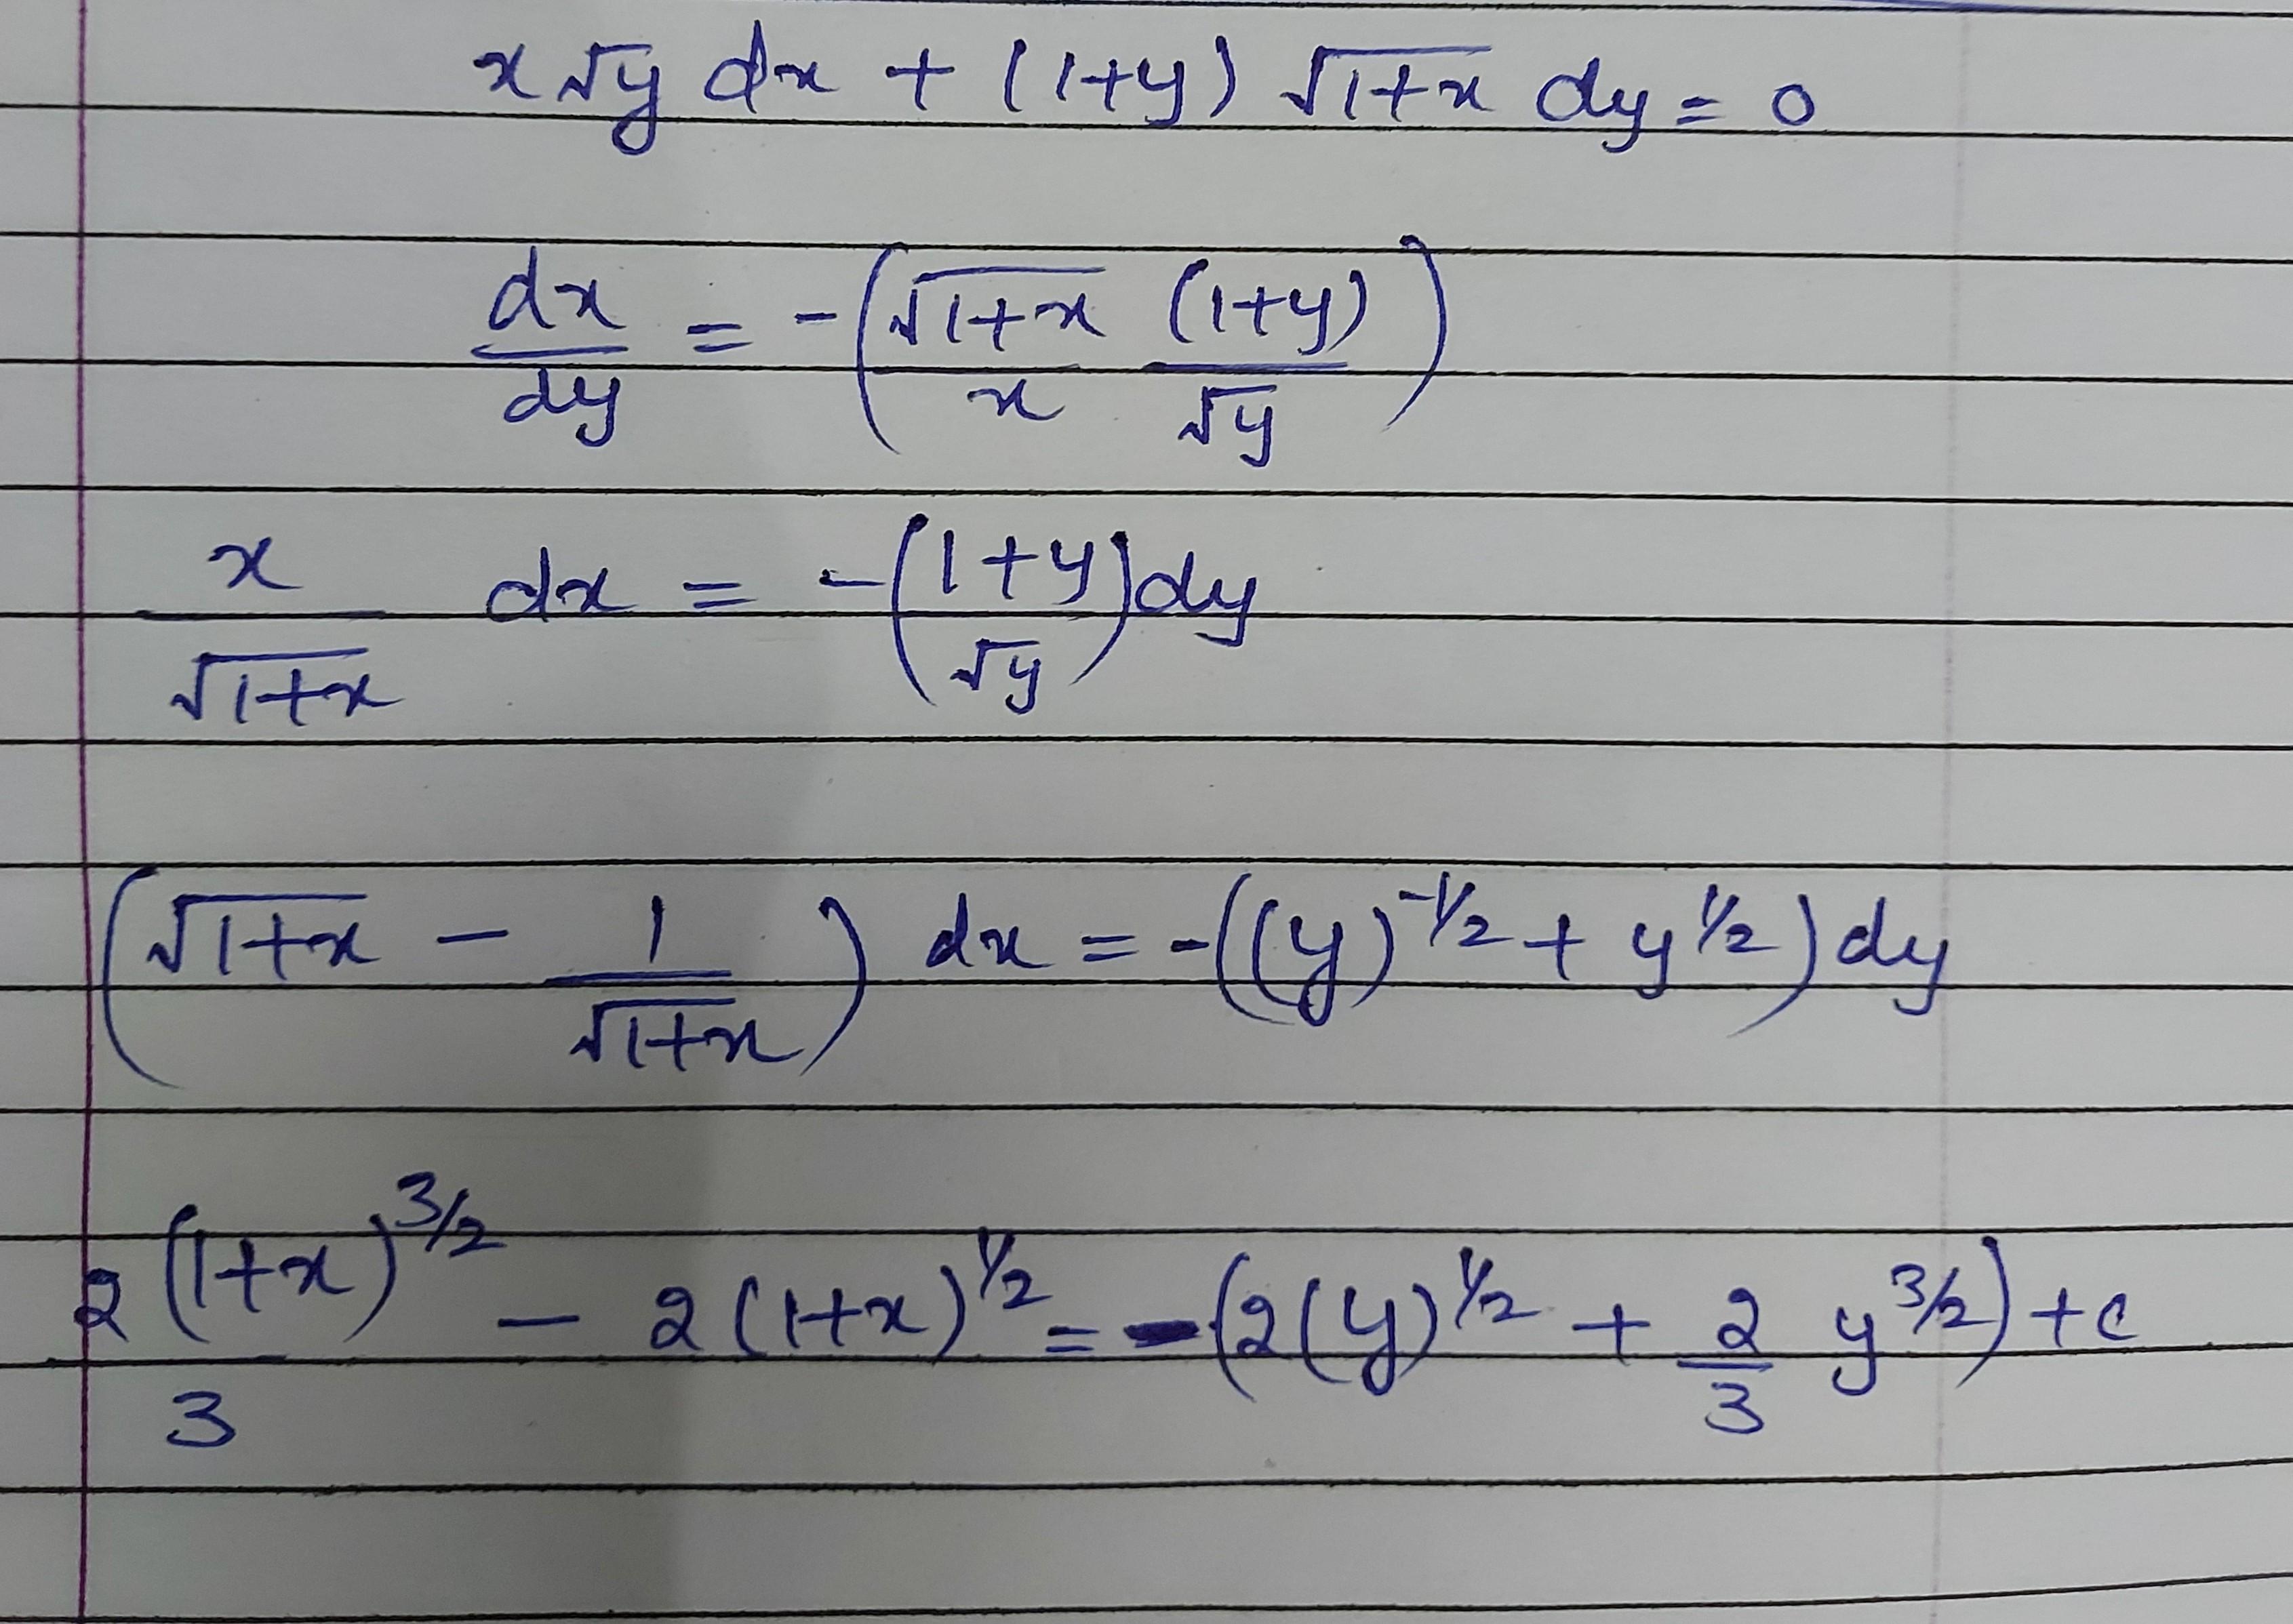 x√y dx + (1+y) √(1+x) dy = 0
dx/dy = -(√(1+x)/x (1+y)/√y)
x/√(1+x) dx = -((1+y)/√y)dy
(√(1+x) - 1/√(1+x)) dx = -((y)^(-1/2) + y^(1/2)) dy
2(1+x)^(3/2)/3 - 2(1+x)^(1/2) = -(2(y)^(1/2) + 2/3 y^(3/2)) + c